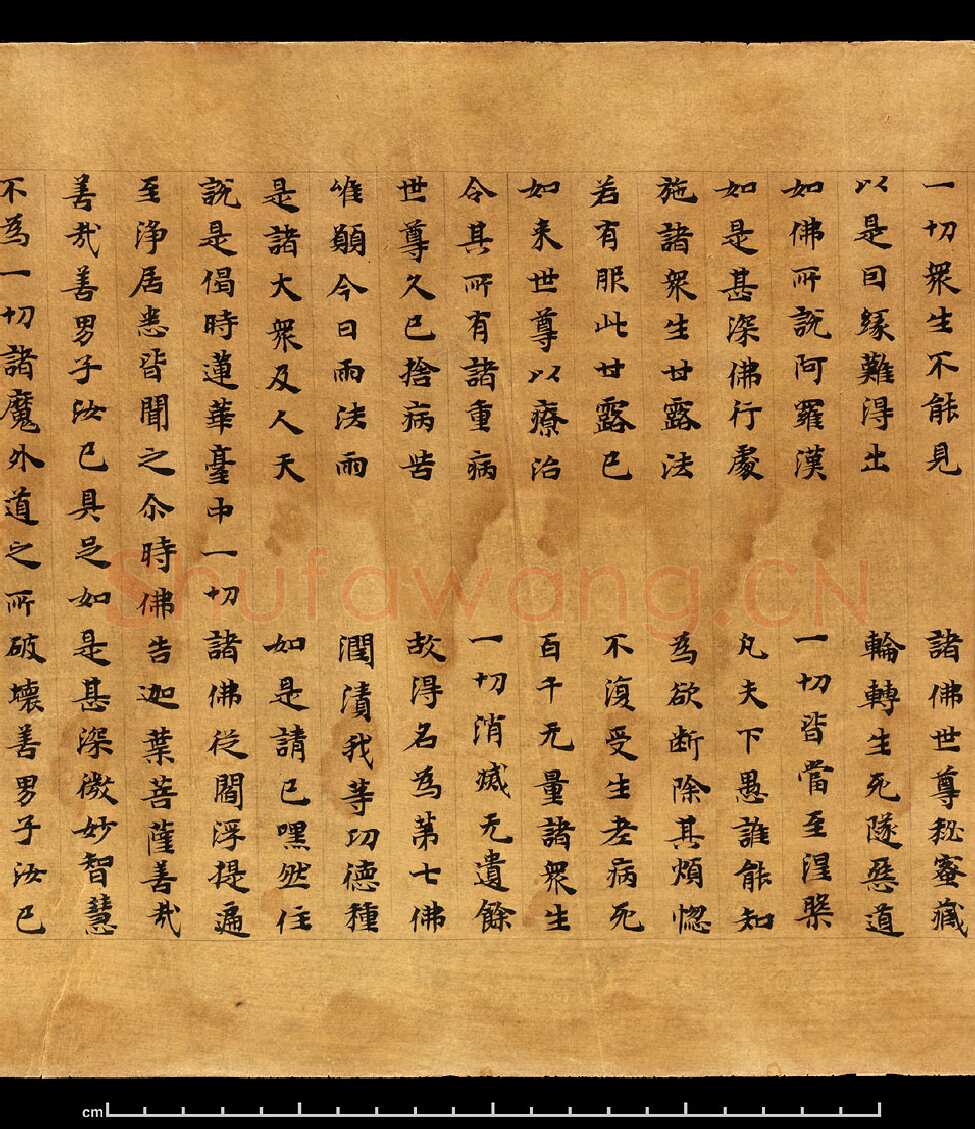 一切衆生不能見 諸佛世尊秘蜜藏
以是因緣難得出 輪轉生死墜惡道
如佛所說阿羅漢 一切皆當至涅槃
如是甚深佛行處 凡夫下愚誰能知
施諸衆生甘露法 為欲断除其煩惱
若有服此甘露已 不復受生老病死
如来世尊以療治 百千无量諸衆生
令其所有諸重病 一切消滅无遺餘
世尊久已捨病苦 故得名為第七佛
唯願今日雨法雨 潤漬我等功德種
是諸大衆及人天 如是請已嘿然住
說是偈時蓮華臺中一切諸佛從閻浮提遍
至淨居悉皆聞之尒時佛告迦葉菩薩善哉
善哉善男子汝已具足如是甚深微妙智慧
不為一切諸魔外道之所破壞善男子汝已
Shufawang.CN
cm